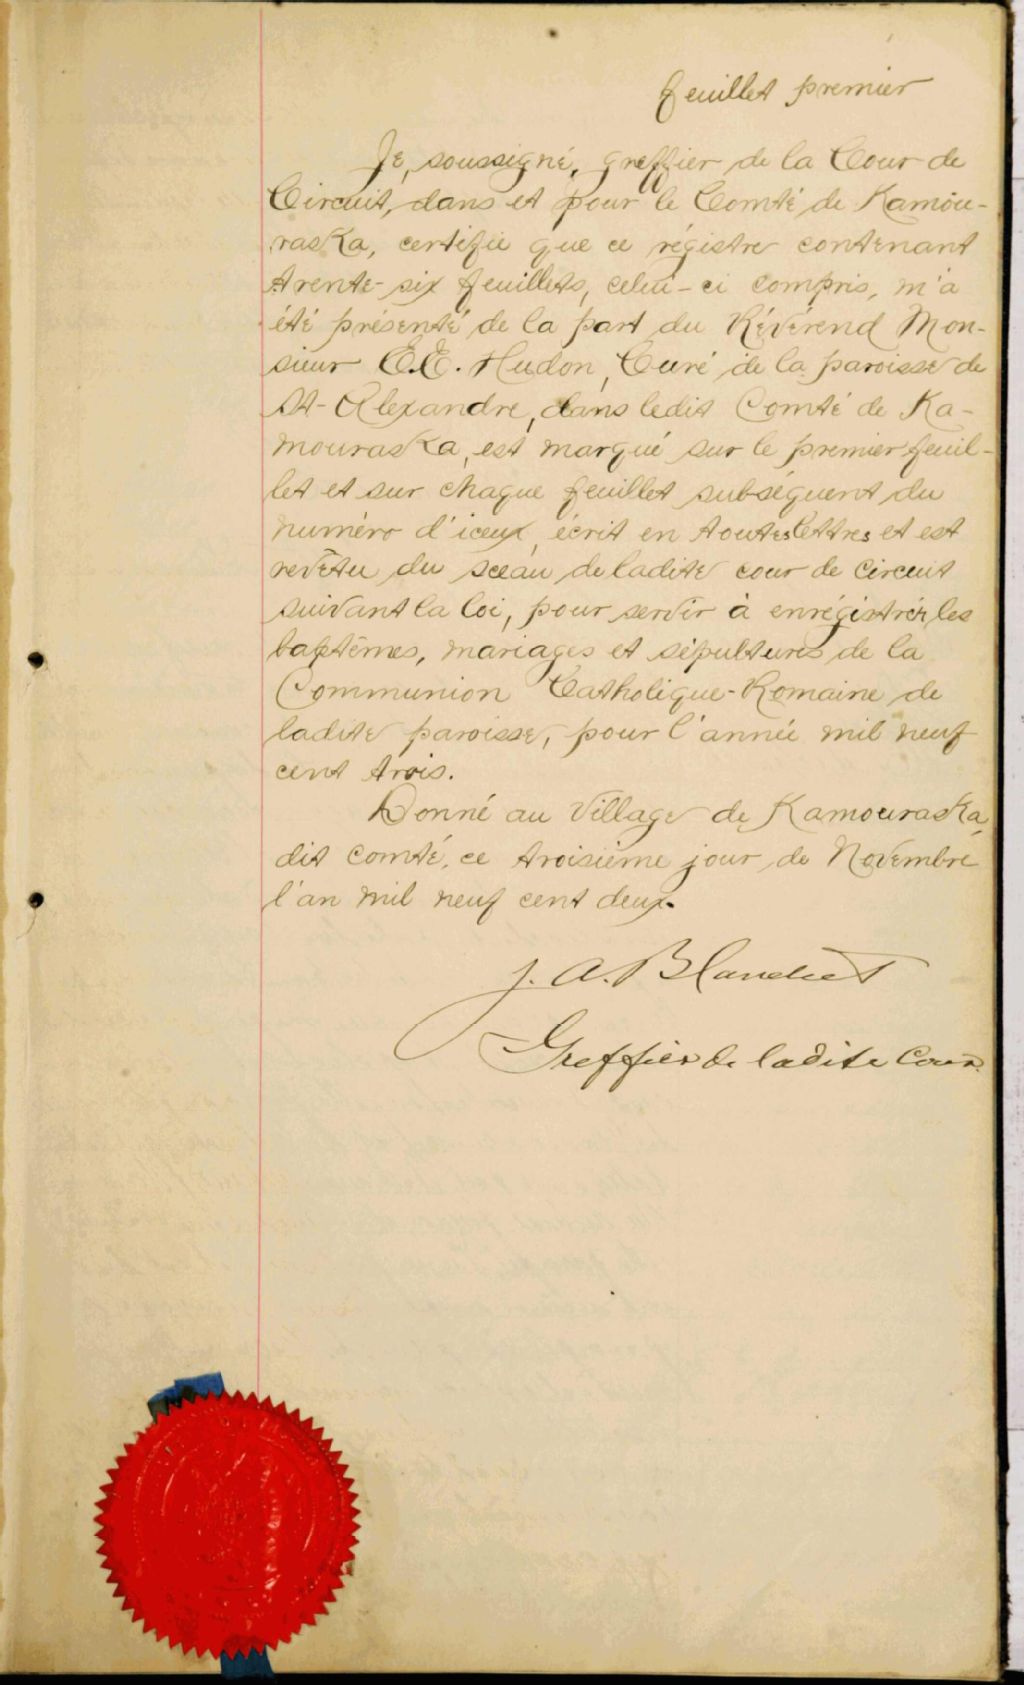 feuillet premier
Je, soussigné, greffier de la Cour de
Circuit, dans et pour le Comté de Kamou-
raska, certifie que ce régistre contenant
trente-six feuillets, celui-ci compris, m'a
été présenté de la part du Révérend Mon-
sieur E.E. Hudon, Curé de la paroisse de
St-Alexandre, dans ledit Comté de Ka-
mouraska, est marqué sur le premier feuil-
let et sur chaque feuillet subséquent du
numéro d'iceux, écrit en toutes lettres et est
revêtu du sceau de ladite cour de circuit
suivant la loi, pour servir à enrégistrer les
baptêmes, mariages et sépultures de la
Communion Catholique-Romaine de
ladite paroisse, pour l'année mil neuf
cent trois.
Donné au village de Kamouraska,
dit comté, ce troisième jour de Novembre
l'an mil neuf cent deux.
J. A. Blanchet
Greffier de ladite Cour.